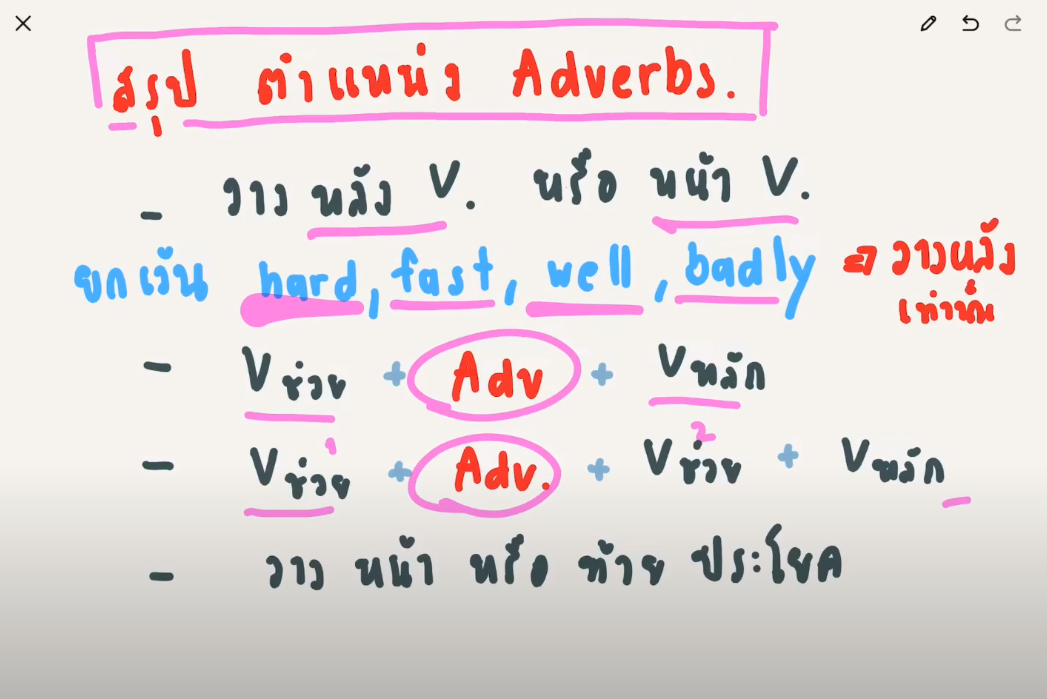 สรุป ตำแหน่ง Adverbs.
- วาง หลัง V. หรือ หน้า V.
ยกเว้น hard, fast, well, badly ⇒ วางหลัง
เท่านั้น
- Vช่วย + Adv + Vหลัก
- Vช่วย 1 + Adv. + Vช่วย 2 + Vหลัก
- วาง หน้า หรือ ท้าย ประโยค